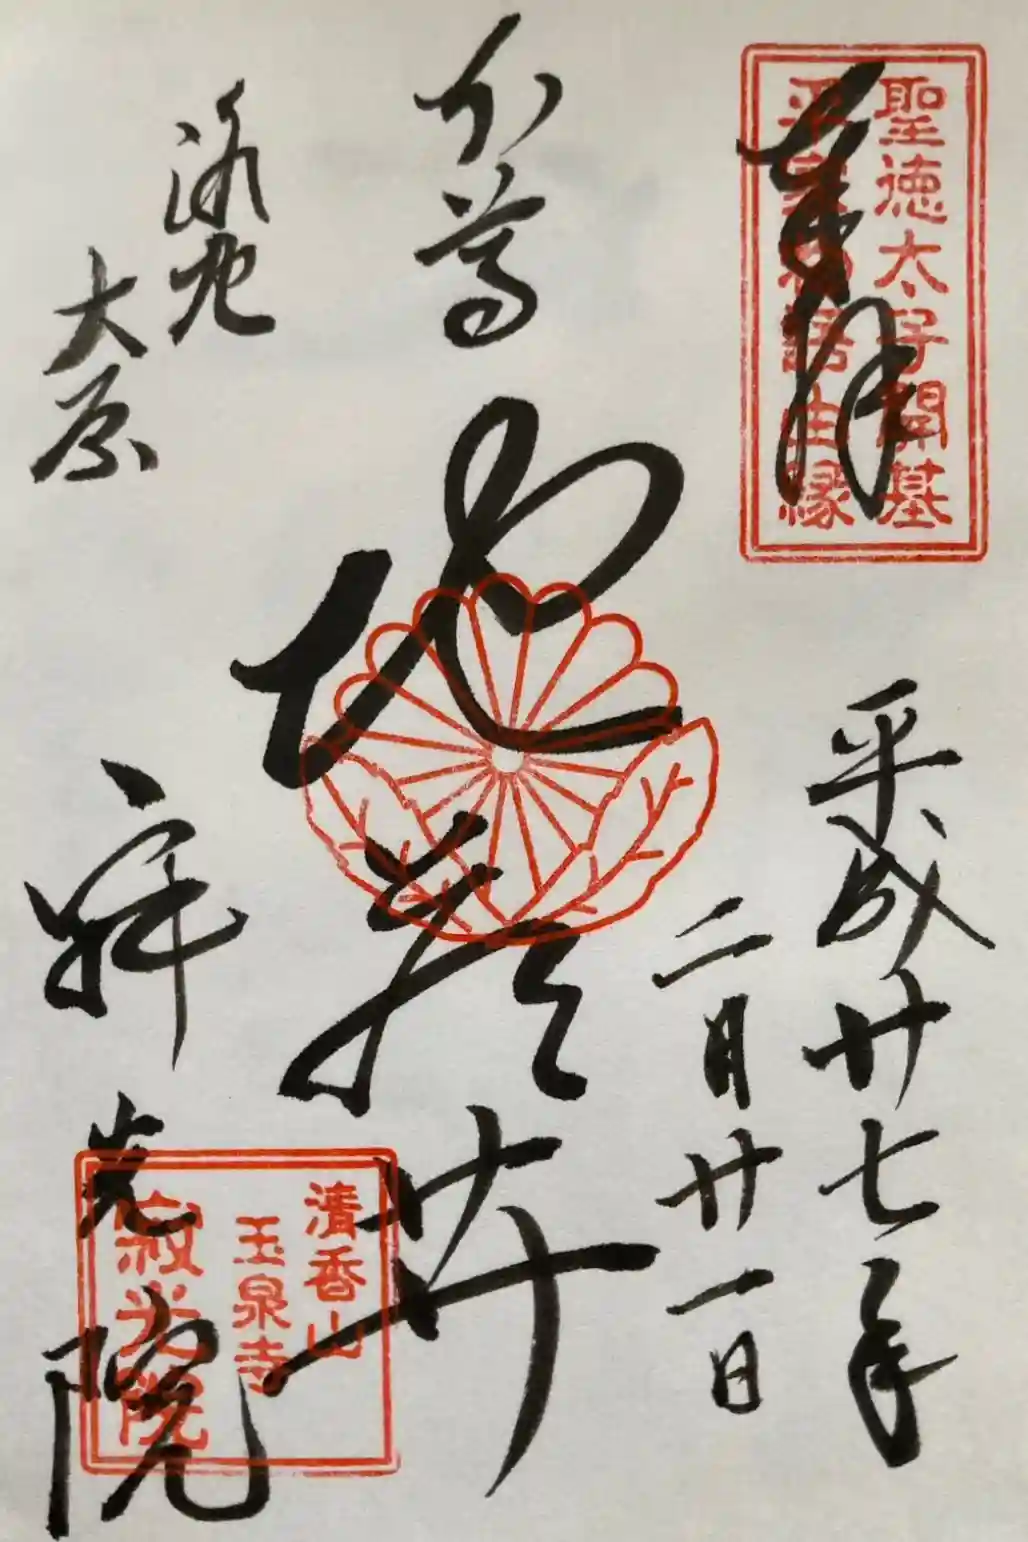 奉拝
聖徳太子開基
平家物語由縁
平成廿七年
二月廿一日
本尊
地蔵菩薩
洛北
大原
寂光院
清香山
玉泉寺
寂光院